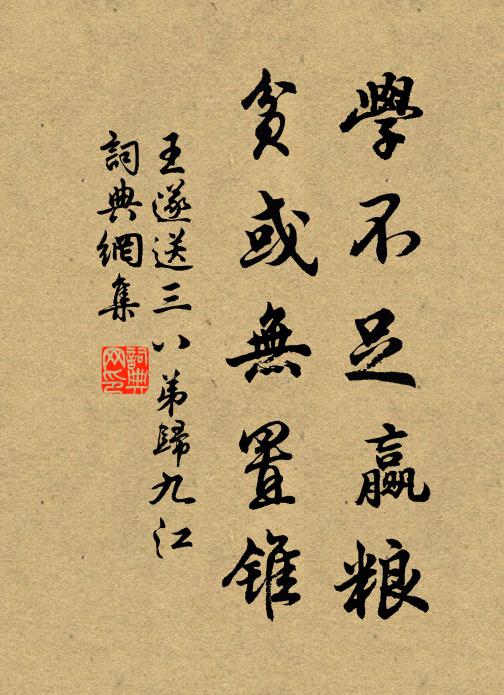 學不足贏粮
貧或無置錐
王遂送三八弟歸九江
詞典網集
詞典网印